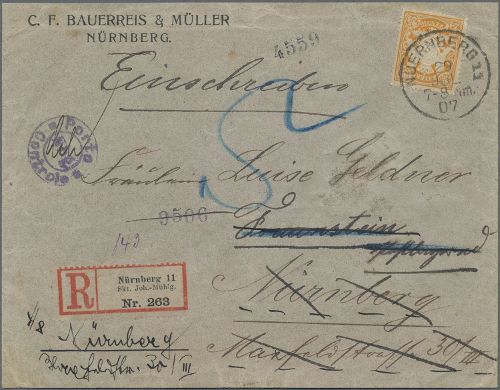 C. F. BAUERREIS & MÜLLER
NÜRNBERG.
4559
NUERNBERG 11
7-8 Nm.
07
Einschreiben
Porto
Control
Fräulein Luise Geldner
9506
Traunstein
143
R
Nürnberg 11
Skt. Joh.-Mühlg.
Nr. 263
Nürnberg
Maxfeldstraße 30/III
Nürnberg
Maxfeldstr. 30/III